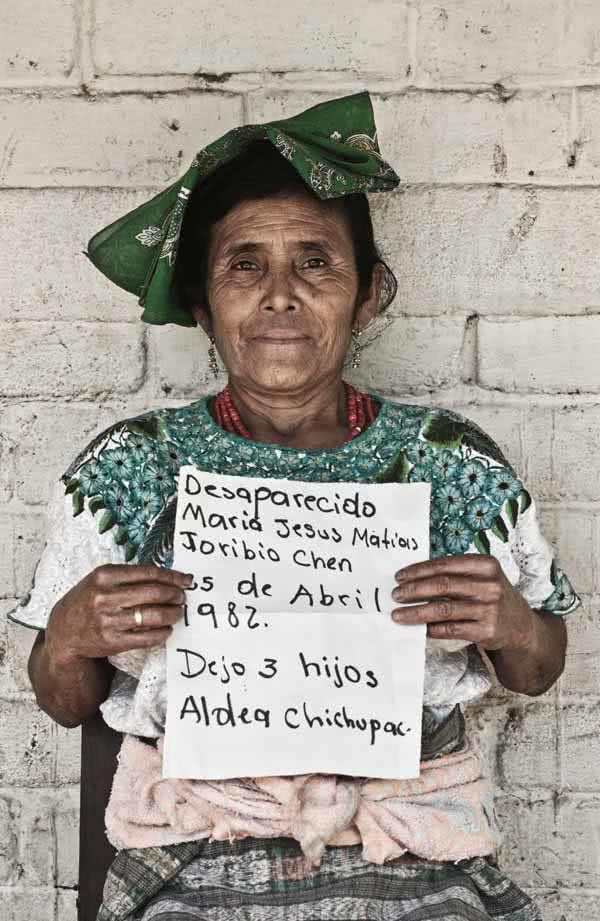 Desaparecido
Maria Jesus Matias
Joribio Chen
de Abril
1982.
Dejo 3 hijos
Aldea Chichupac.